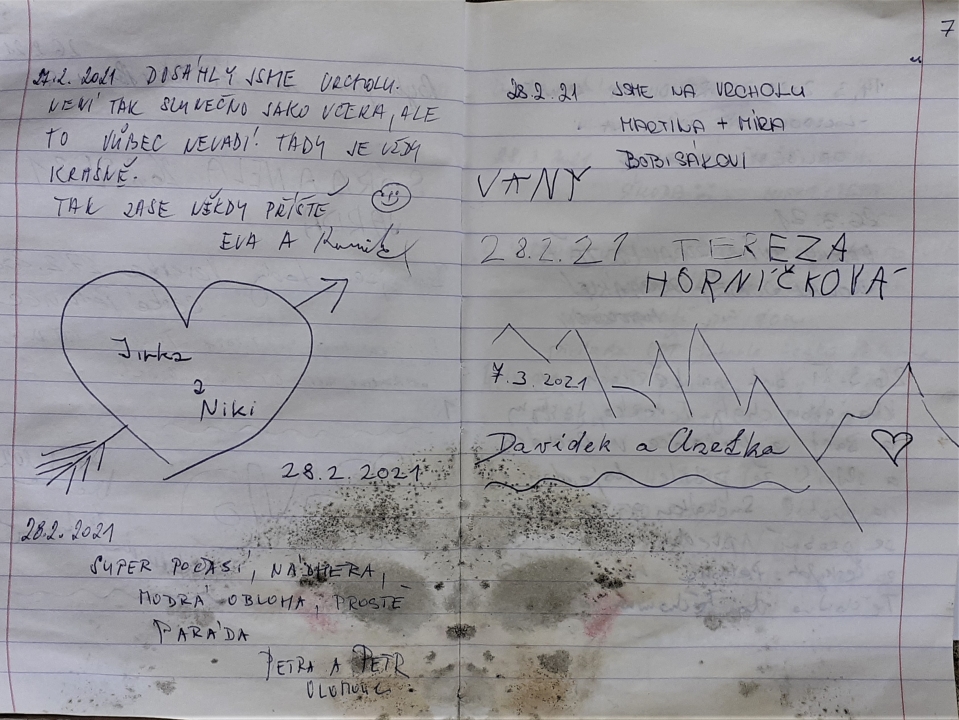 27.2. 2021 DOSÁHLY JSME VRCHOLU.
NENÍ TAK SLUNEČNO JAKO VČERA, ALE
TO VŮBEC NEVADÍ. TADY JE VŽDY
KRÁSNĚ.
TAK ZASE NĚKDY PŘÍŠTĚ
EVA A
Jirka
a
Niki
28.2.2021
28.2.2021
SUPER POČASÍ, NÁDHERA,
MODRÁ OBLOHA, PROSTĚ
PARÁDA
PETRA A PETR
OLOMOUC
7
28.2.21 JSME NA VRCHOLU
MARTINA + MÍRA
BOBISÁKOVI
VANY
28.2.21 TEREZA
HORNÍČKOVÁ
7.3.2021
Davídek a Anežka